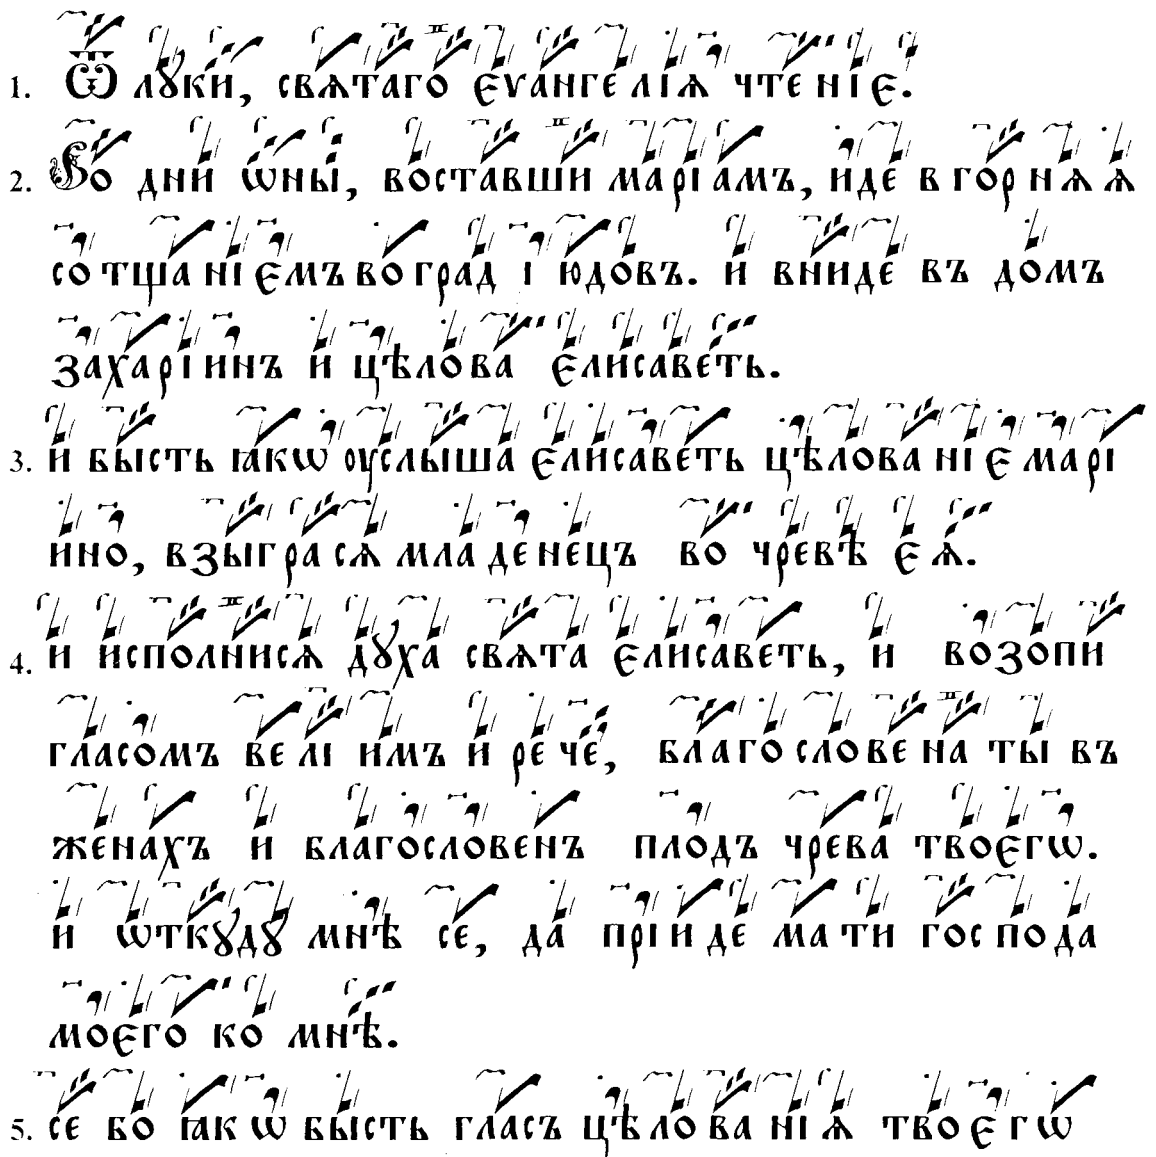 1. Ѿ лꙋки, свѧтаго єѵангеліѧ чтеніє.
2. Во дни ѡны, воставши маріамъ, иде в горнѧѧ
со тщаніємъ во град іюдовъ. и вниде въ домъ
захаріинъ и цѣлова єлисаветь.
3. и бысть ꙗкѡ оуслыша єлисаветь цѣлованіє марі
ино, взыграсѧ младенець во чревѣ єѧ.
4. и исполнисѧ дꙋха свѧта єлисаветь, и возопи
гласомъ веліимъ и рече, благословена ты въ
женахъ и благословенъ плодъ чрева твоєгѡ.
и ѡткꙋдꙋ мнѣ се, да пріиде мати господа
моєго ко мнѣ.
5. се бо ꙗкѡ бысть гласъ цѣлованіѧ твоєгѡ